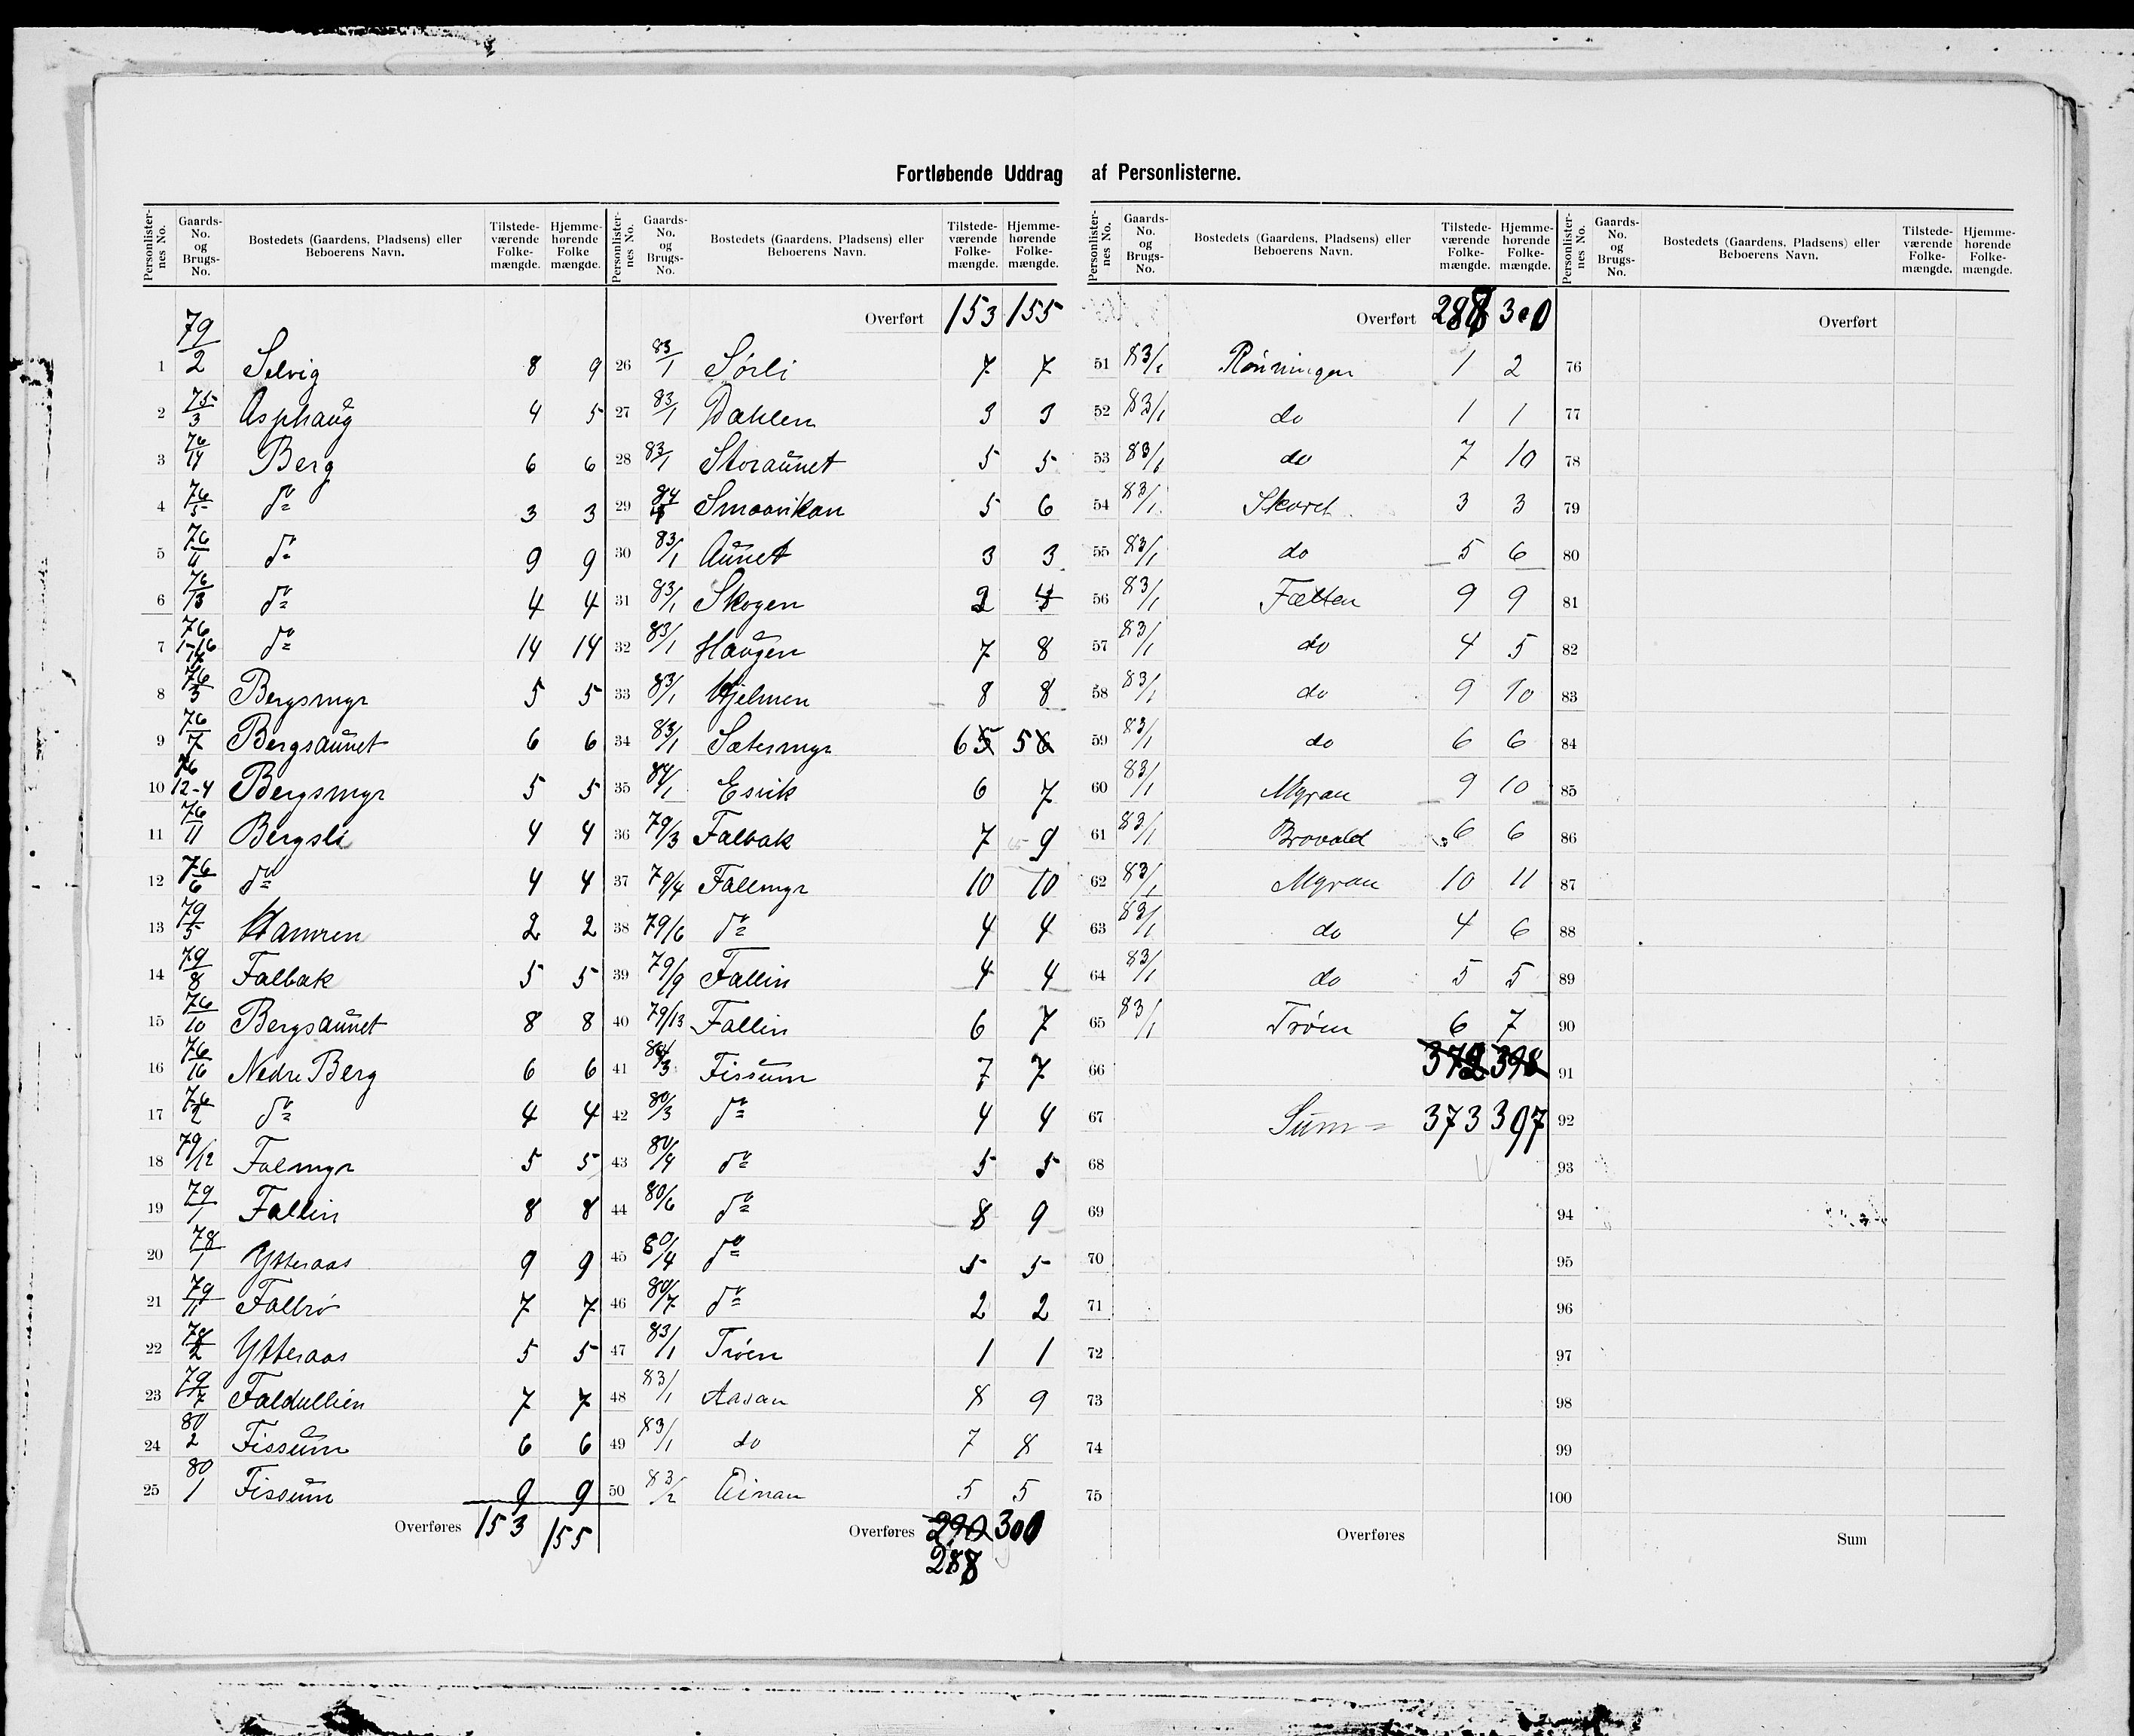 Fortløbende Uddrag af Personlisterne.
Personlister-nes No. Gaards-No. og Brugs-No. Bostedets (Gaardens, Pladsens) eller Beboerens Navn. Tilstede-værende Folke-mængde. Hjemme-hørende Folke mængde.
1 79/2 Selvig 8 9
2 75/3 Asphaug 4 5
3 76/14 Berg 6 6
4 76/5 do 3 3
5 76/4 do 9 9
6 76/13 do 4 4
7 76 1-16 do 14 14
8 76/3 Bergsmyr 5 5
9 76/7 Bergsaunet 6 6
10 76 12-4 Bergsmyr 5 5
11 76/11 Bergsli 4 4
12 76/6 do 4 4
13 79/5 Hamren 2 2
14 79/8 Falbak 5 5
15 76/10 Bergsaunet 8 8
16 76/16 Nedre Berg 6 6
17 76/2 do 4 4
18 79/12 Falmyr 5 5
19 79/1 Fallin 8 8
20 78/1 Ytteraas 9 9
21 79/11 Faltrø 7 7
22 78/2 Ytteraas 5 5
23 79/7 Faldullien 7 7
24 80 2 Fissum 6 6
25 80 1 Fissum 9 9
Overføres 153 155
Personlister-nes No. Gaards-No. og Brugs-No. Bostedets (Gaardens, Pladsens) eller Beboerens Navn. Tilstede-værende Folke-mængde. Hjemme-hørende Folke-mængde.
Overført 153 155
26 83/1 Sørli 7 7
27 83/1 Dahlen 3 3
28 83/1 Storaunet 5 5
29 84 Smaavikan 5 6
30 83/1 Aunet 3 3
31 83/1 Skogen 2
32 83/1 Haugen 7 8
33 83/1 Hjelmen 8 8
34 83/1 Sætermyr 6 5 5 6
35 84/1 Esvik 6 7
36 79/3 Falbak 7 9
37 79/4 Fallmyr 10 10
38 79/6 do 4 4
39 79/9 Fallin 4 4
40 79/13 Fallin 6 7
41 80/3 Fissum 7 7
42 80/3 do 4 4
43 80/4 do 5 5
44 80/6 do 8 9
45 80/4 do 5 5
46 80/7 do 2 2
47 83/1 Trøen 1 1
48 83/1 Aasan 8 9
49 83/1 do 7 8
50 83/2 Einan 5 5
Overføres 290 300
288
Personlister-nes No. Gaards-No. og Brugs-No. Bostedets (Gaardens, Pladsens) eller Beboerens Navn. Tilstede-værende Folke-mængde. Hjemme-hørende Folke-mængde.
Overført 288 300
51 83/1 Rønningen 1 2
52 83/1 do 1 1
53 83/1 do 7 10
54 83/1 Skaret 3 3
55 83/1 do 5 6
56 83/1 Fætten 9 9
57 83/1 do 4 5
58 83/1 do 9 10
59 83/1 do 6 6
60 83/1 Myran 9 10
61 83/1 Brovold 6 6
62 83/1 Myran 10 11
63 83/1 do 4 6
64 83/1 do 5 5
65 83/1 Trøen 6 7
66 372 398
67 Sum = 373 397
68
69
70
71
72
73
74
75
Overføres
Personlister-nes No. Gaards-No. og Brugs-No. Bostedets (Gaardens, Pladsens) eller Beboerens Navn. Tilstede-værende Folke-mængde. Hjemme-hørende Folke-mængde.
Overført
76
77
78
79
80
81
82
83
84
85
86
87
88
89
90
91
92
93
94
95
96
97
98
99
100
Sum